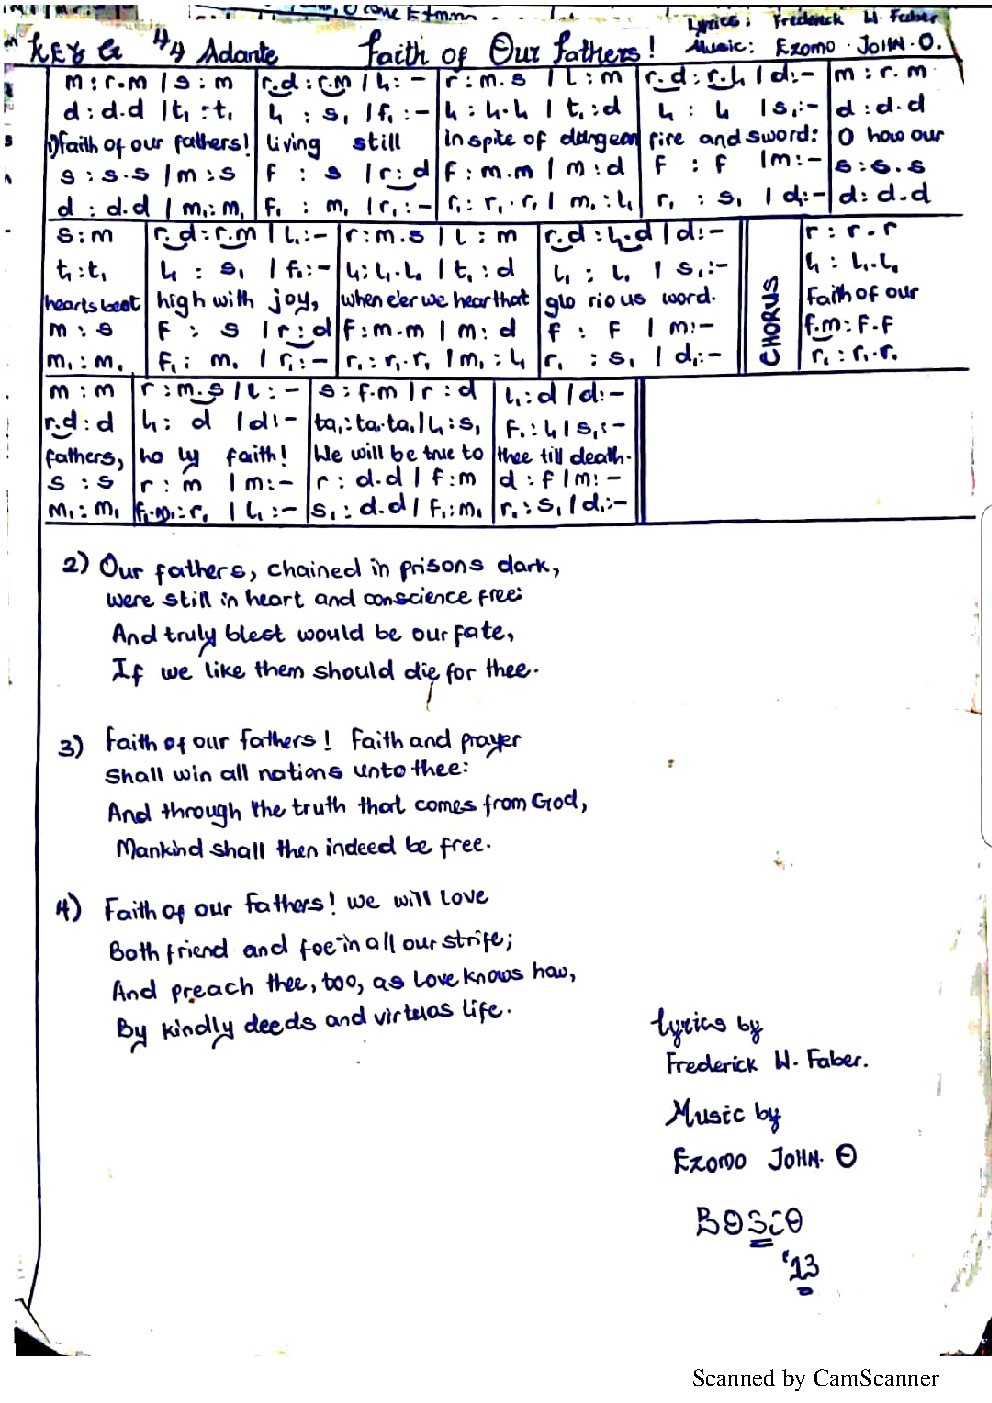 Lyrics: Frederick W Faber
KEY G 4/4 Adante Faith of Our Fathers! Music: Ezomo JOHN.O.
m : r.m | s : m r.d : r.m | l₁ : - r : m.s | l : m r.d : r.l₁ | d : - m : r.m
d : d.d | t₁ : t₁ l₁ : s₁ | f₁ : - l₁ : l₁.l₁ | t₁ : d l₁ : l₁ | s₁ : - d : d.d
1) faith of our fathers! living still in spite of dungeon fire and sword: O how our
s : s.s | m : s f : s | r : d f : m.m | m : d f : f | m : - s : s.s
d : d.d | m₁ : m₁ f₁ : m₁ | r₁ : - r₁ : r₁.r₁ | m₁ : l₁ r₁ : s₁ | d₁ : - d : d.d
s : m r.d : r.m | l₁ : - r : m.s | l : m r.d : l₁.d | d : - r : r.r
t₁ : t₁ l₁ : s₁ | f₁ : - l₁ : l₁.l₁ | t₁ : d l₁ : l₁ | s₁ : - l₁ : l₁.l₁
hearts beat high with joy, when e'er we hear that glo rious word. CHORUS Faith of our
m : s f : s | r : d f : m.m | m : d f : f | m : - f.m : f.f
m₁ : m₁ f₁ : m₁ | r₁ : - r₁ : r₁.r₁ | m₁ : l₁ r₁ : s₁ | d₁ : - r₁ : r₁.r₁
m : m r : m.s | l : - s : f.m | r : d l₁ : d | d : -
r.d : d l₁ : d | d : - ta₁ : ta₁.ta₁ | l₁ : s₁ f₁ : l₁ | s₁ : -
fathers, ho ly faith! We will be true to thee till death.
s : s r : m | m : - r : d.d | f : m d : f | m : -
m₁ : m₁ f₁.m₁ : r₁ | l₁ : - s₁ : d.d | f₁ : m₁ r₁ : s₁ | d₁ : -
2) Our fathers, chained in prisons dark,
were still in heart and conscience free:
And truly blest would be our fate,
If we like them should die for thee.
3) Faith of our fathers! Faith and prayer
Shall win all nations unto thee:
And through the truth that comes from God,
Mankind shall then indeed be free.
4) Faith of our fathers! we will love
Both friend and foe in all our strife;
And preach thee, too, as love knows how,
By kindly deeds and virtuos life.
Lyrics by
Frederick W. Faber.
Music by
EZOMO JOHN. O
BOSCO
'13
Scanned by CamScanner